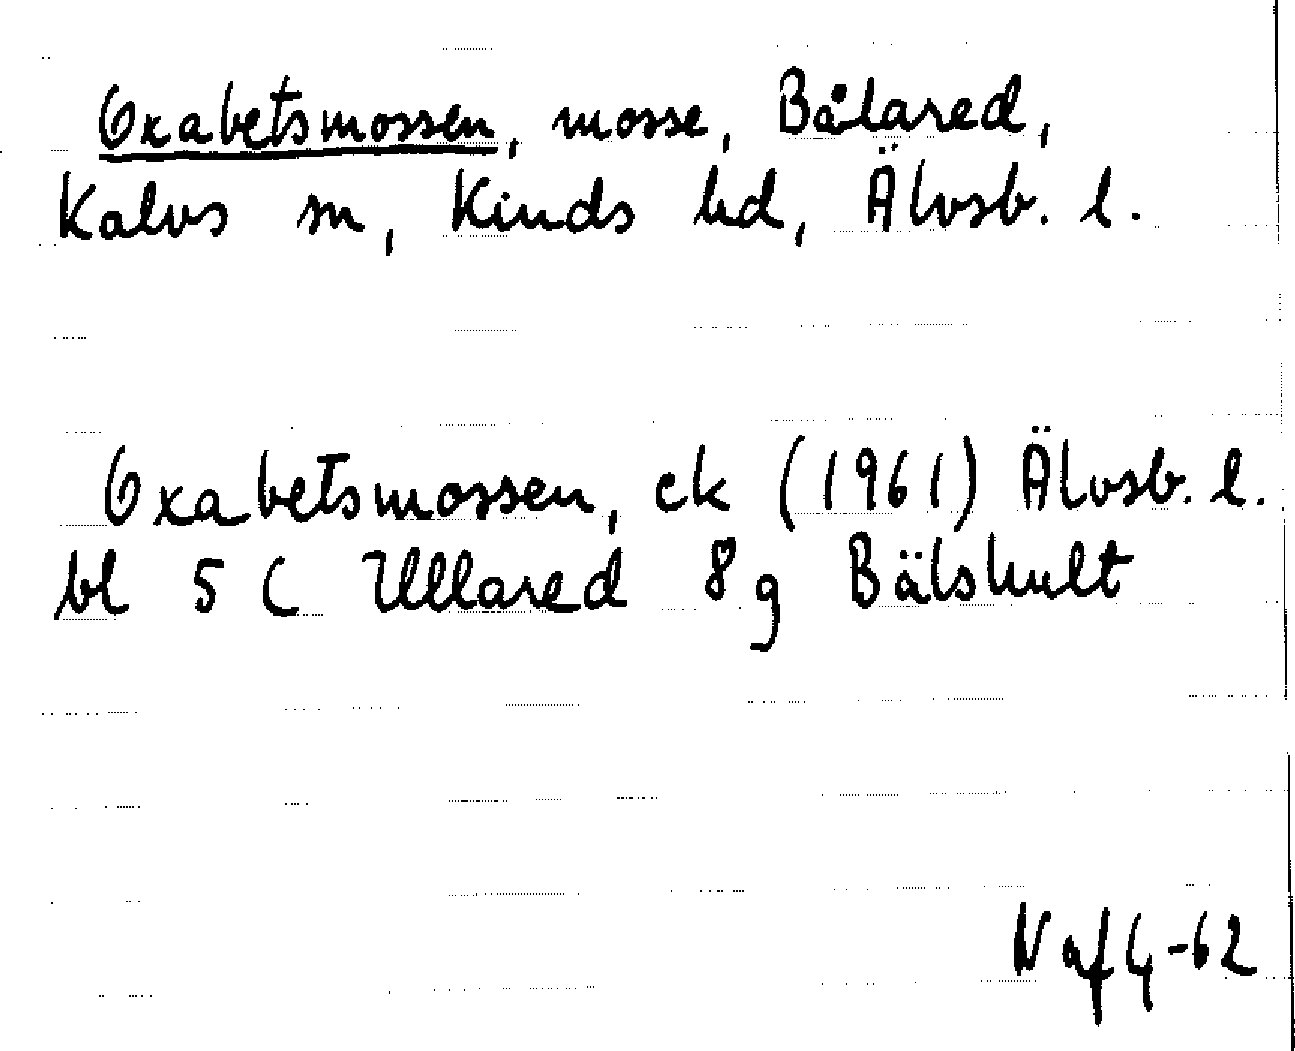 Oxabetsmossen, mosse, Bålared,
Kalvs sn, Kinds hd, Älvsb. l.
Oxabetsmossen, ek (1961) Älvsb. l.
bl 5 C Ullared 8g Bälshult